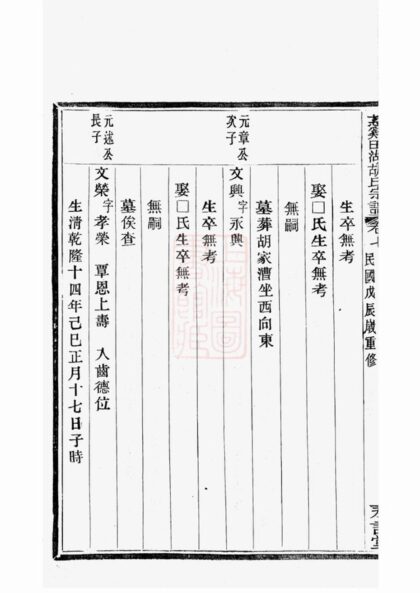 胡氏宗譜 卷七 民國戊辰歲重修
生卒無考
娶□氏生卒無考
無嗣
墓葬胡家漕坐西向東
元章公
次子
文興字永興
生卒無考
娶□氏生卒無考
無嗣
墓俟查
元述公
長子
文榮字孝榮 覃恩上壽 入齒德位
生清乾隆十四年己巳正月十七日子時